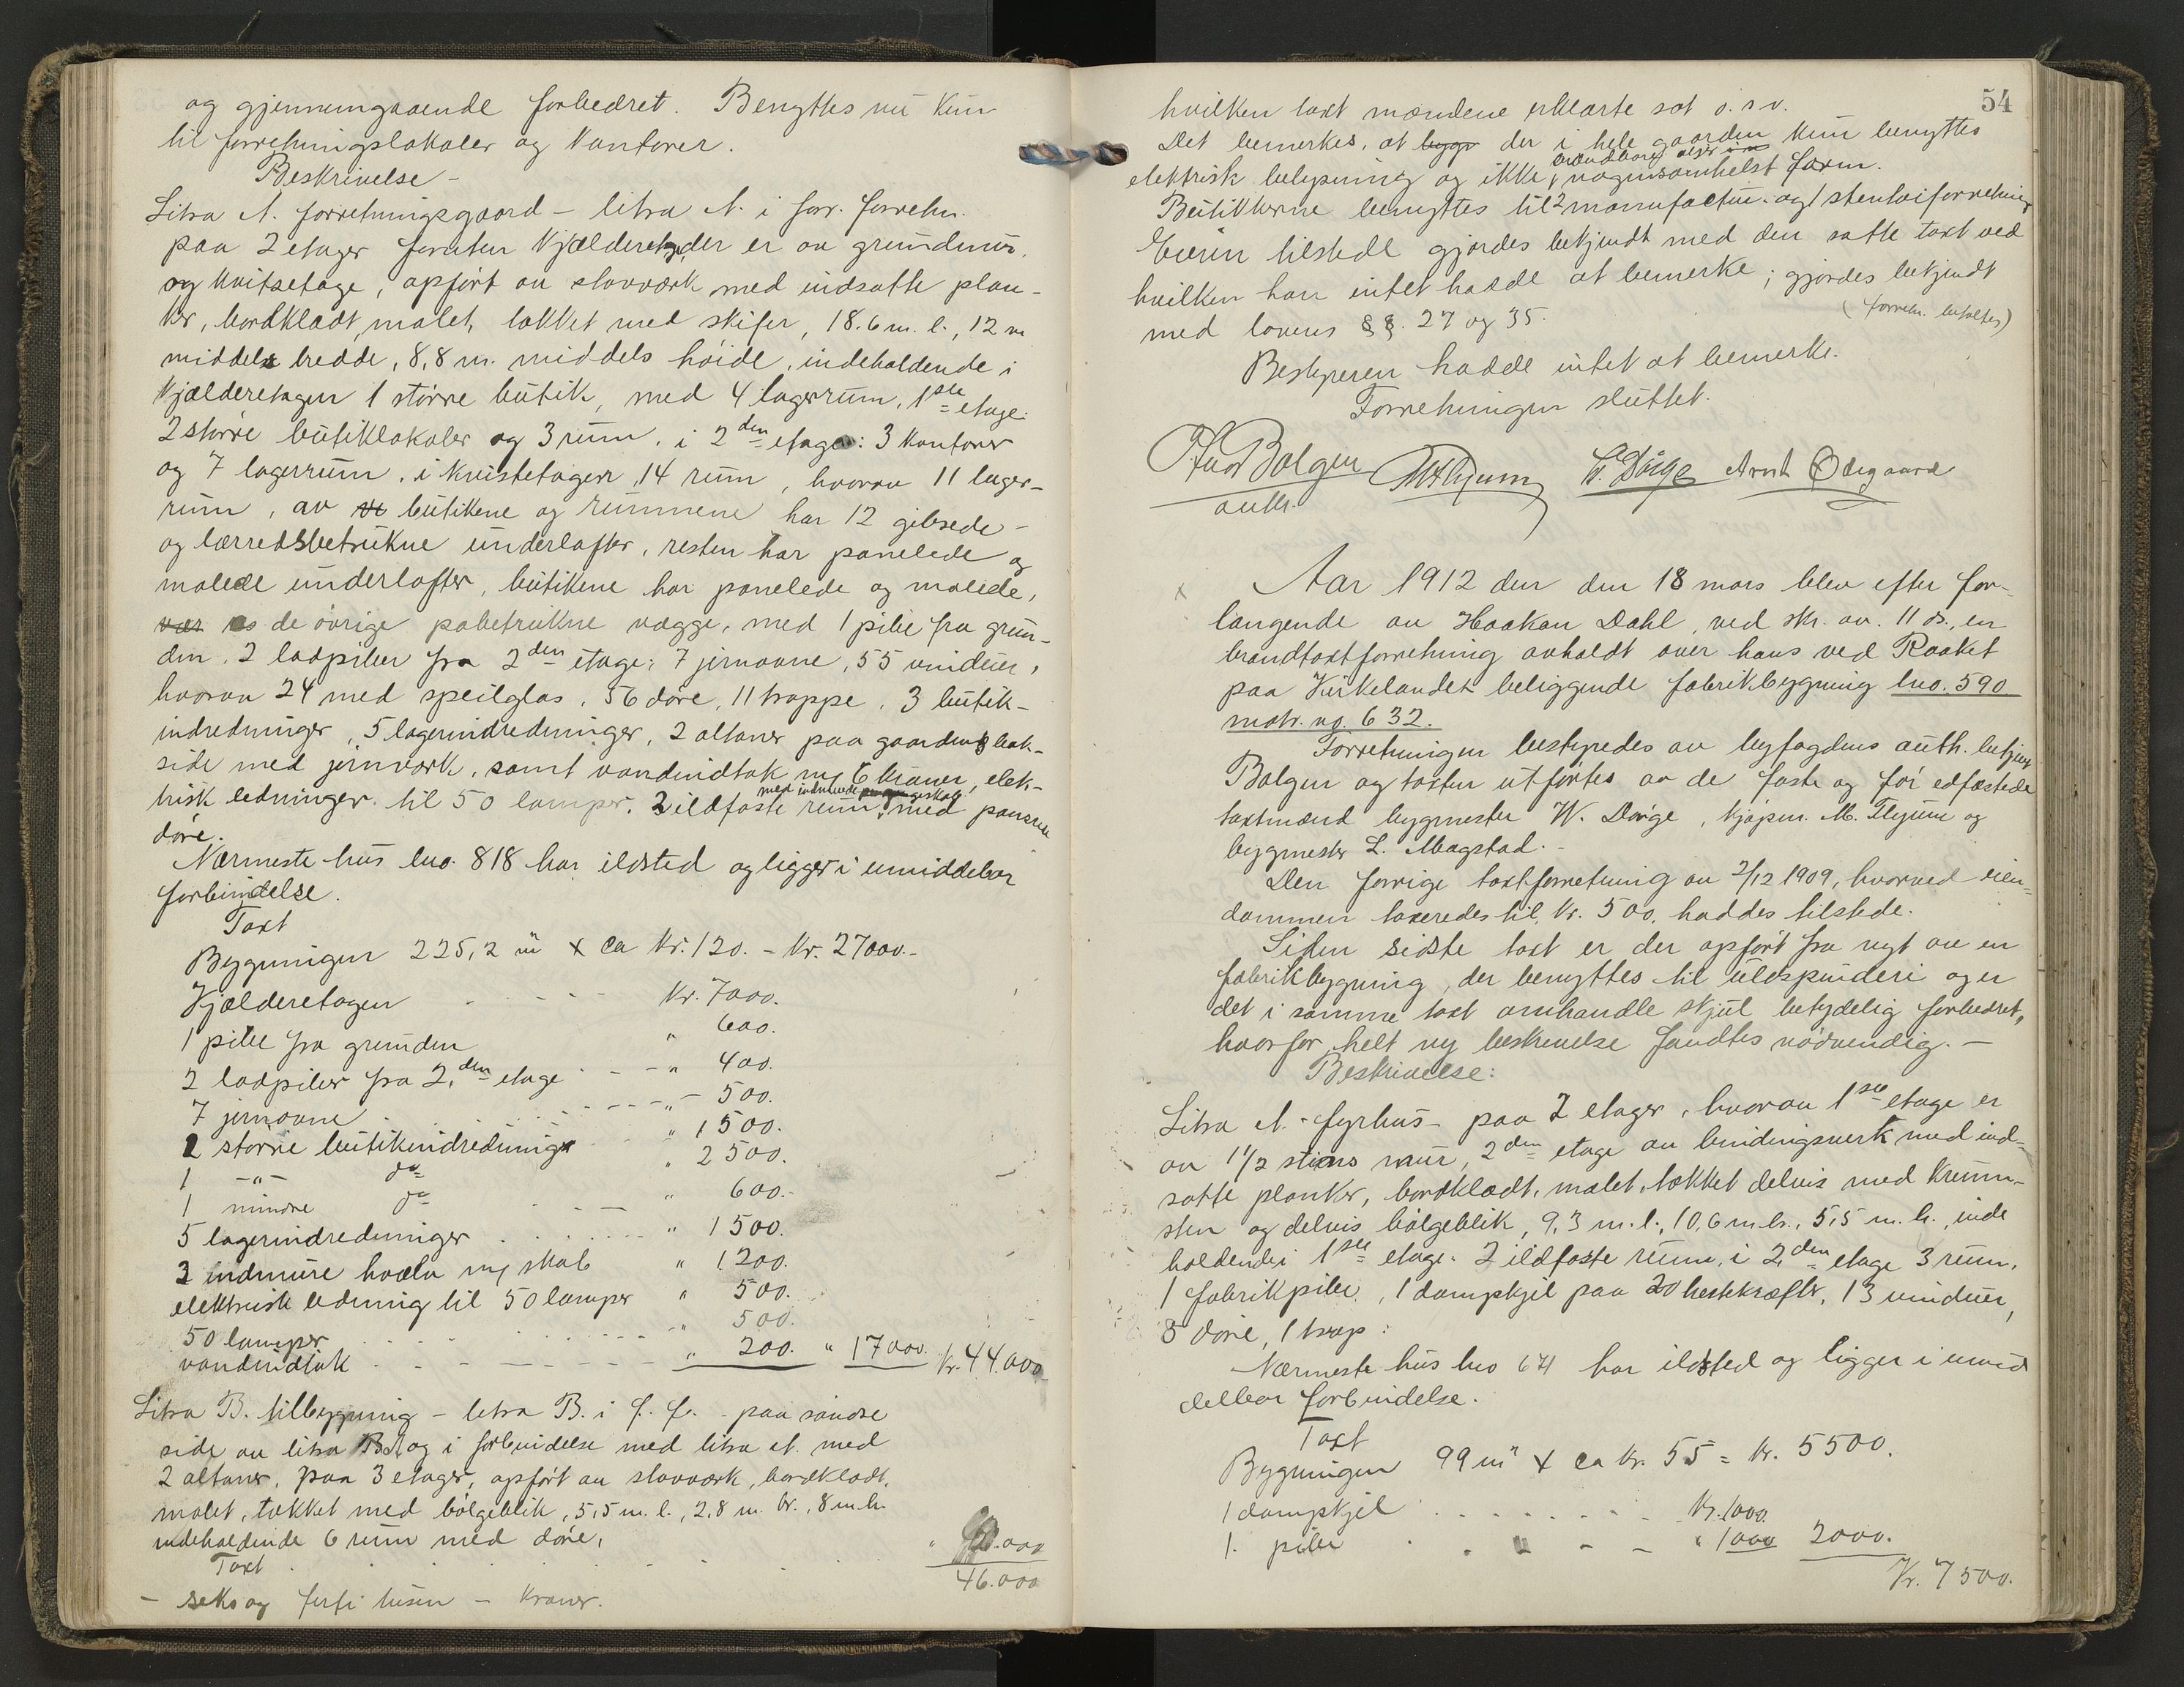 og gjennemgaaende forbedret. Benyttes nu kun
til forretningslokaler og kontorer.
Beskrivelse -
Litra A. forretningsgaard - litra A. i forr. forretn.
paa 2 etager foruten kjælderetage, der er av grundmur,
og kvistetage, opført av stavværk med indsatte plan-
ker, bordklædt, malet, tækket med skifer, 18.6 m. l., 12 m
middels bredde, 8,8 m. middels høide, indeholdende i
kjælderetagen 1 større butik, med 4 lagerrum, 1ste etage:
2 større butiklokaler og 3 rum, i 2den etage: 3 kontorer
og 7 lagerrum, i kvistetagen 14 rum, hvorav 11 lager-
rum, av butikene og rummene har 12 gibsede -
og lærredsbetrukne underlofter, resten har panelede og
malede underlofter, butikene har panelede og malede,
de øvrige pabetrukne vægge, med 1 pibe fra grun-
den, 2 ladpiber fra 2den etage; 7 jernovne, 55 vinduer,
hvorav 24 med speilglas, 56 døre, 11 trappe, 3 butik-
indredninger, 5 lagerindredninger, 2 altaner paa gaardens bak-
side med jernværk, samt vandindtak m/ 6 kraner, elek-
trisk ledninger til 50 lamper, 2 ildfaste rum med panser
døre.
Nærmeste hus lno. 818 har ildsted og ligger i umiddelbar
forbindelse.
Taxt
Bygningen 225,2 m² x ca kr. 120. - Kr. 27000.-
Kjælderetagen - - - - Kr. 7000.
1 pibe fra grunden " 600.
2 ladpiber fra 2. den etage - - - " 400.
7 jernovne - - - - " - 500.
2 større butikindredninger " 1500.
1 -"- do " 2500.
1 mindre do - - - " 600.-
5 lagerindredninger " 1500.
2 indmure hvælv m/ skab " 1200.
elektrisk ledning til 50 lamper " 500.
50 lamper - - - - " 500.
vandindtak - - - - " 200. " 17000. Kr. 44.000
Litra B. tilbygning - litra B. i f. f. - paa søndre
side av litra A og i forbindelse med litra A. med
2 altaner, paa 3 etager, opført av stavværk, bordklædt,
malet, tækket med bølgeblik, 5,5 m. l., 2,8 m. br., 8 m. h.
indeholdende 6 rum med døre,
Taxt " 2.000
46.000
- seks og - kraner.
54
hvilken taxt mændene erklærte sat o. s v.
Det bemerkes, at der i hele gaarden kun benyttes
elektrisk belysning og ikke brændbare oljer i nogensomhelst form.
Butikkerne benyttes til 2 manufactur- og 1 stentøiforretning
Eieren tilstede gjordes bekjendt med den satte taxt ved
hvilken han intet hadde at bemerke; gjordes bekjendt
med lovens §§. 27 og 35.
(forretn. beholtes)
Bestyreren hadde intet at bemerke.
Forretningen sluttet.
Bolgen W. Dørge Arnt Ødegaard
auth.
x Aar 1912 den den 18 mars blev efter for-
langende av Haakon Dahl, ved skr. av. 11 ds., en
brandtaxtforretning avholdt over hans ved Raaket
paa Kirkelandet beliggende fabrikbygning lno. 590
matr. no. 632.
Forretningen bestyredes av byfogdens auth. betjent
Bolgen og taxten utførtes av de faste og før edfæstede
taxtmænd bygmester W. Dørge, kjøpm. M. Flyum og
bygmester L. Magstad. -
Den forrige taxtforretning av 2/12 1909, hvorved eien-
dommen taxeredes til Kr. 500, haddes tilstede.
Siden sidste taxt er der opført fra nyt av en
fabrikbygning, der benyttes til uldspinderi og er
det i samme taxt omhandle skjul betydelig forbedret,
hvorfor helt ny beskrivelse fandtes nødvendig. -
Beskrivelse:
Litra A. - fyrhus - paa 2 etager, hvorav 1ste etage er
av 1 1/2 stens mur, 2den etage av bindingsverk med ind-
satte planker, bordklædt, malet, tækket delvis med krum-
sten og delvis bølgeblik, 9,3 m. l., 10,6 m. br., 5,5 m. h., inde
holdende i 1ste etage: 2 ildfaste rum, i 2. den etage 3 rum,
1 fabrikpibe, 1 dampkjel paa 20 hestekræfter, 13 vinduer,
8 døre, 1 trap:
Nærmeste hus lno 671 har ildsted og ligger i umid
delbar forbindelse.
Taxt
Bygningen 99 m² x ca kr. 55 = kr. 5500.
1 dampkjel . . . . . . Kr. 1000.
1. pibe . . " - - " 1000 2000.
Kr. 7500.